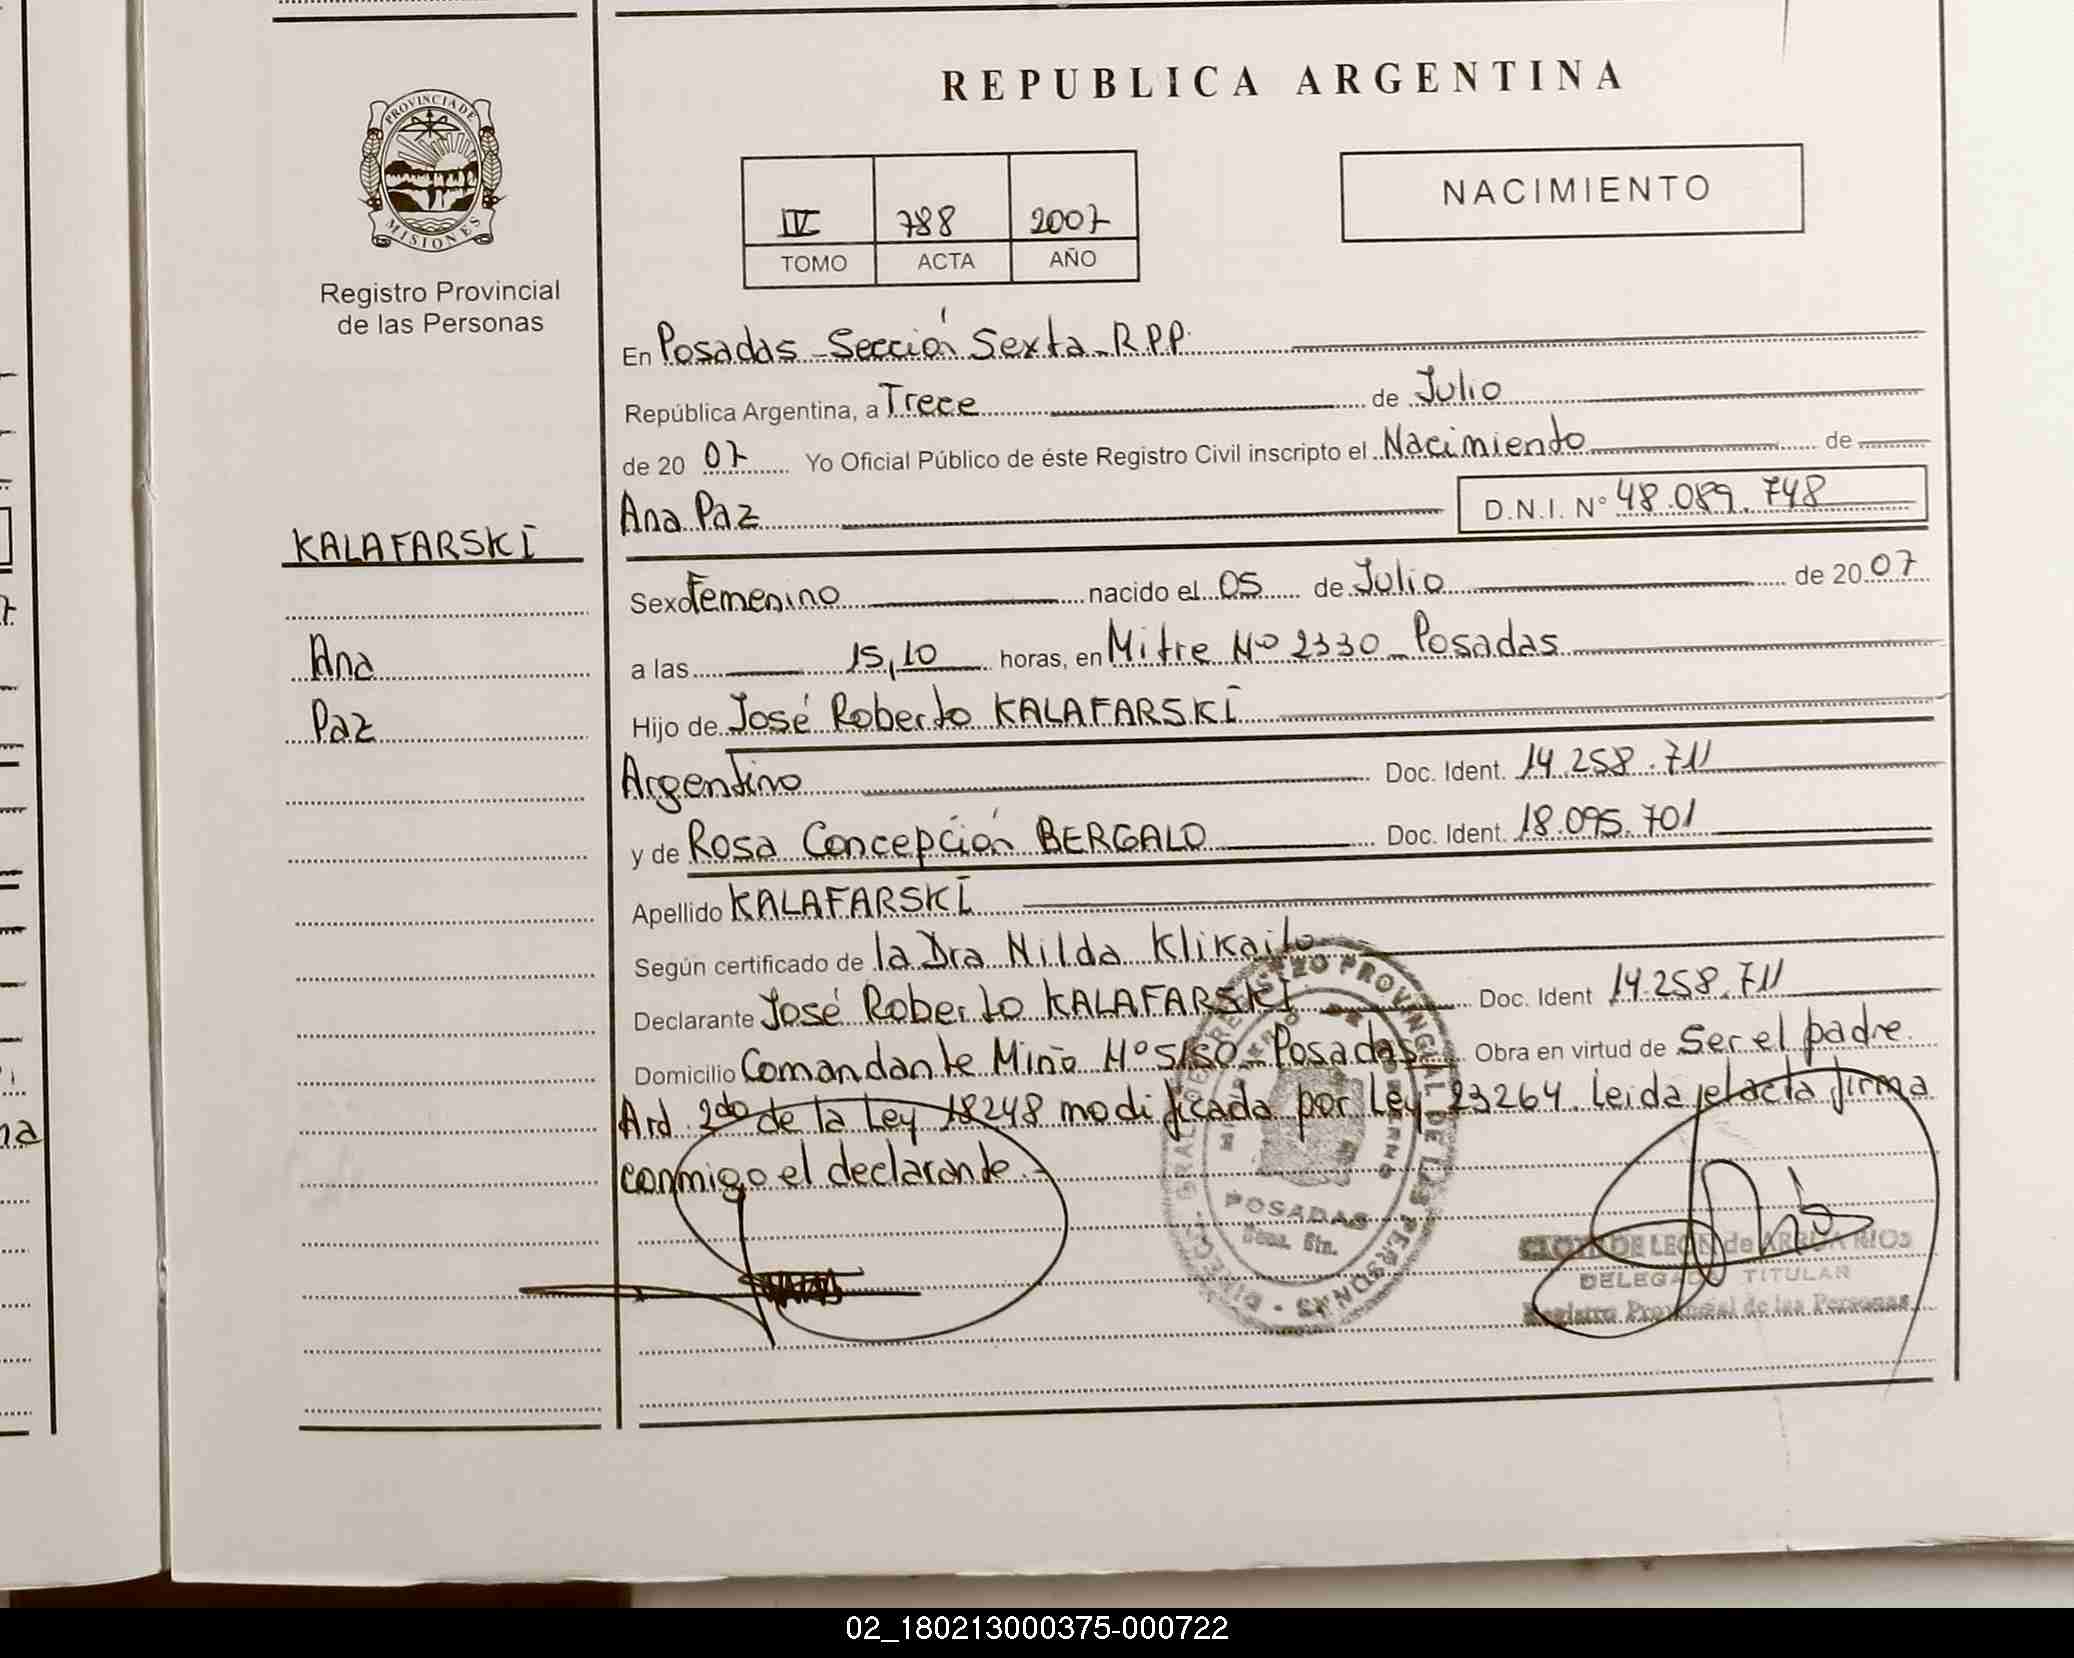 REPUBLICA ARGENTINA
PROVINCIA DE
MISIONES
Registro Provincial
de las Personas
IV 788 2007
TOMO ACTA AÑO
NACIMIENTO
En Posadas Sección Sexta R.P.P.
República Argentina, a Trece de Julio
de 20 07 Yo Oficial Público de éste Registro Civil inscripto el Nacimiento de
Ana Paz D.N.I. Nº 48.089.748
KALAFARSKI
Ana
Paz
Sexo Femenino nacido el 05 de Julio de 20 07
a las 15,10 horas, en Mitre Nº 2330 Posadas
Hijo de José Roberto KALAFARSKI
Argentino Doc. Ident. 14.258.711
y de Rosa Concepción BERGALO Doc. Ident. 18.095.701
Apellido KALAFARSKI
Según certificado de la Dra Nilda Klikailo
Declarante José Roberto KALAFARSKI Doc. Ident 14.258.711
Domicilio Comandante Miño Nº Posadas Obra en virtud de Ser el padre.
Art 2do de la Ley 18248 modificada por Ley 23264. Leida el acta firma
conmigo el declarante.
POSADAS
DELEGADA TITULAR
Registro Provincial de las Personas
02_180213000375-000722